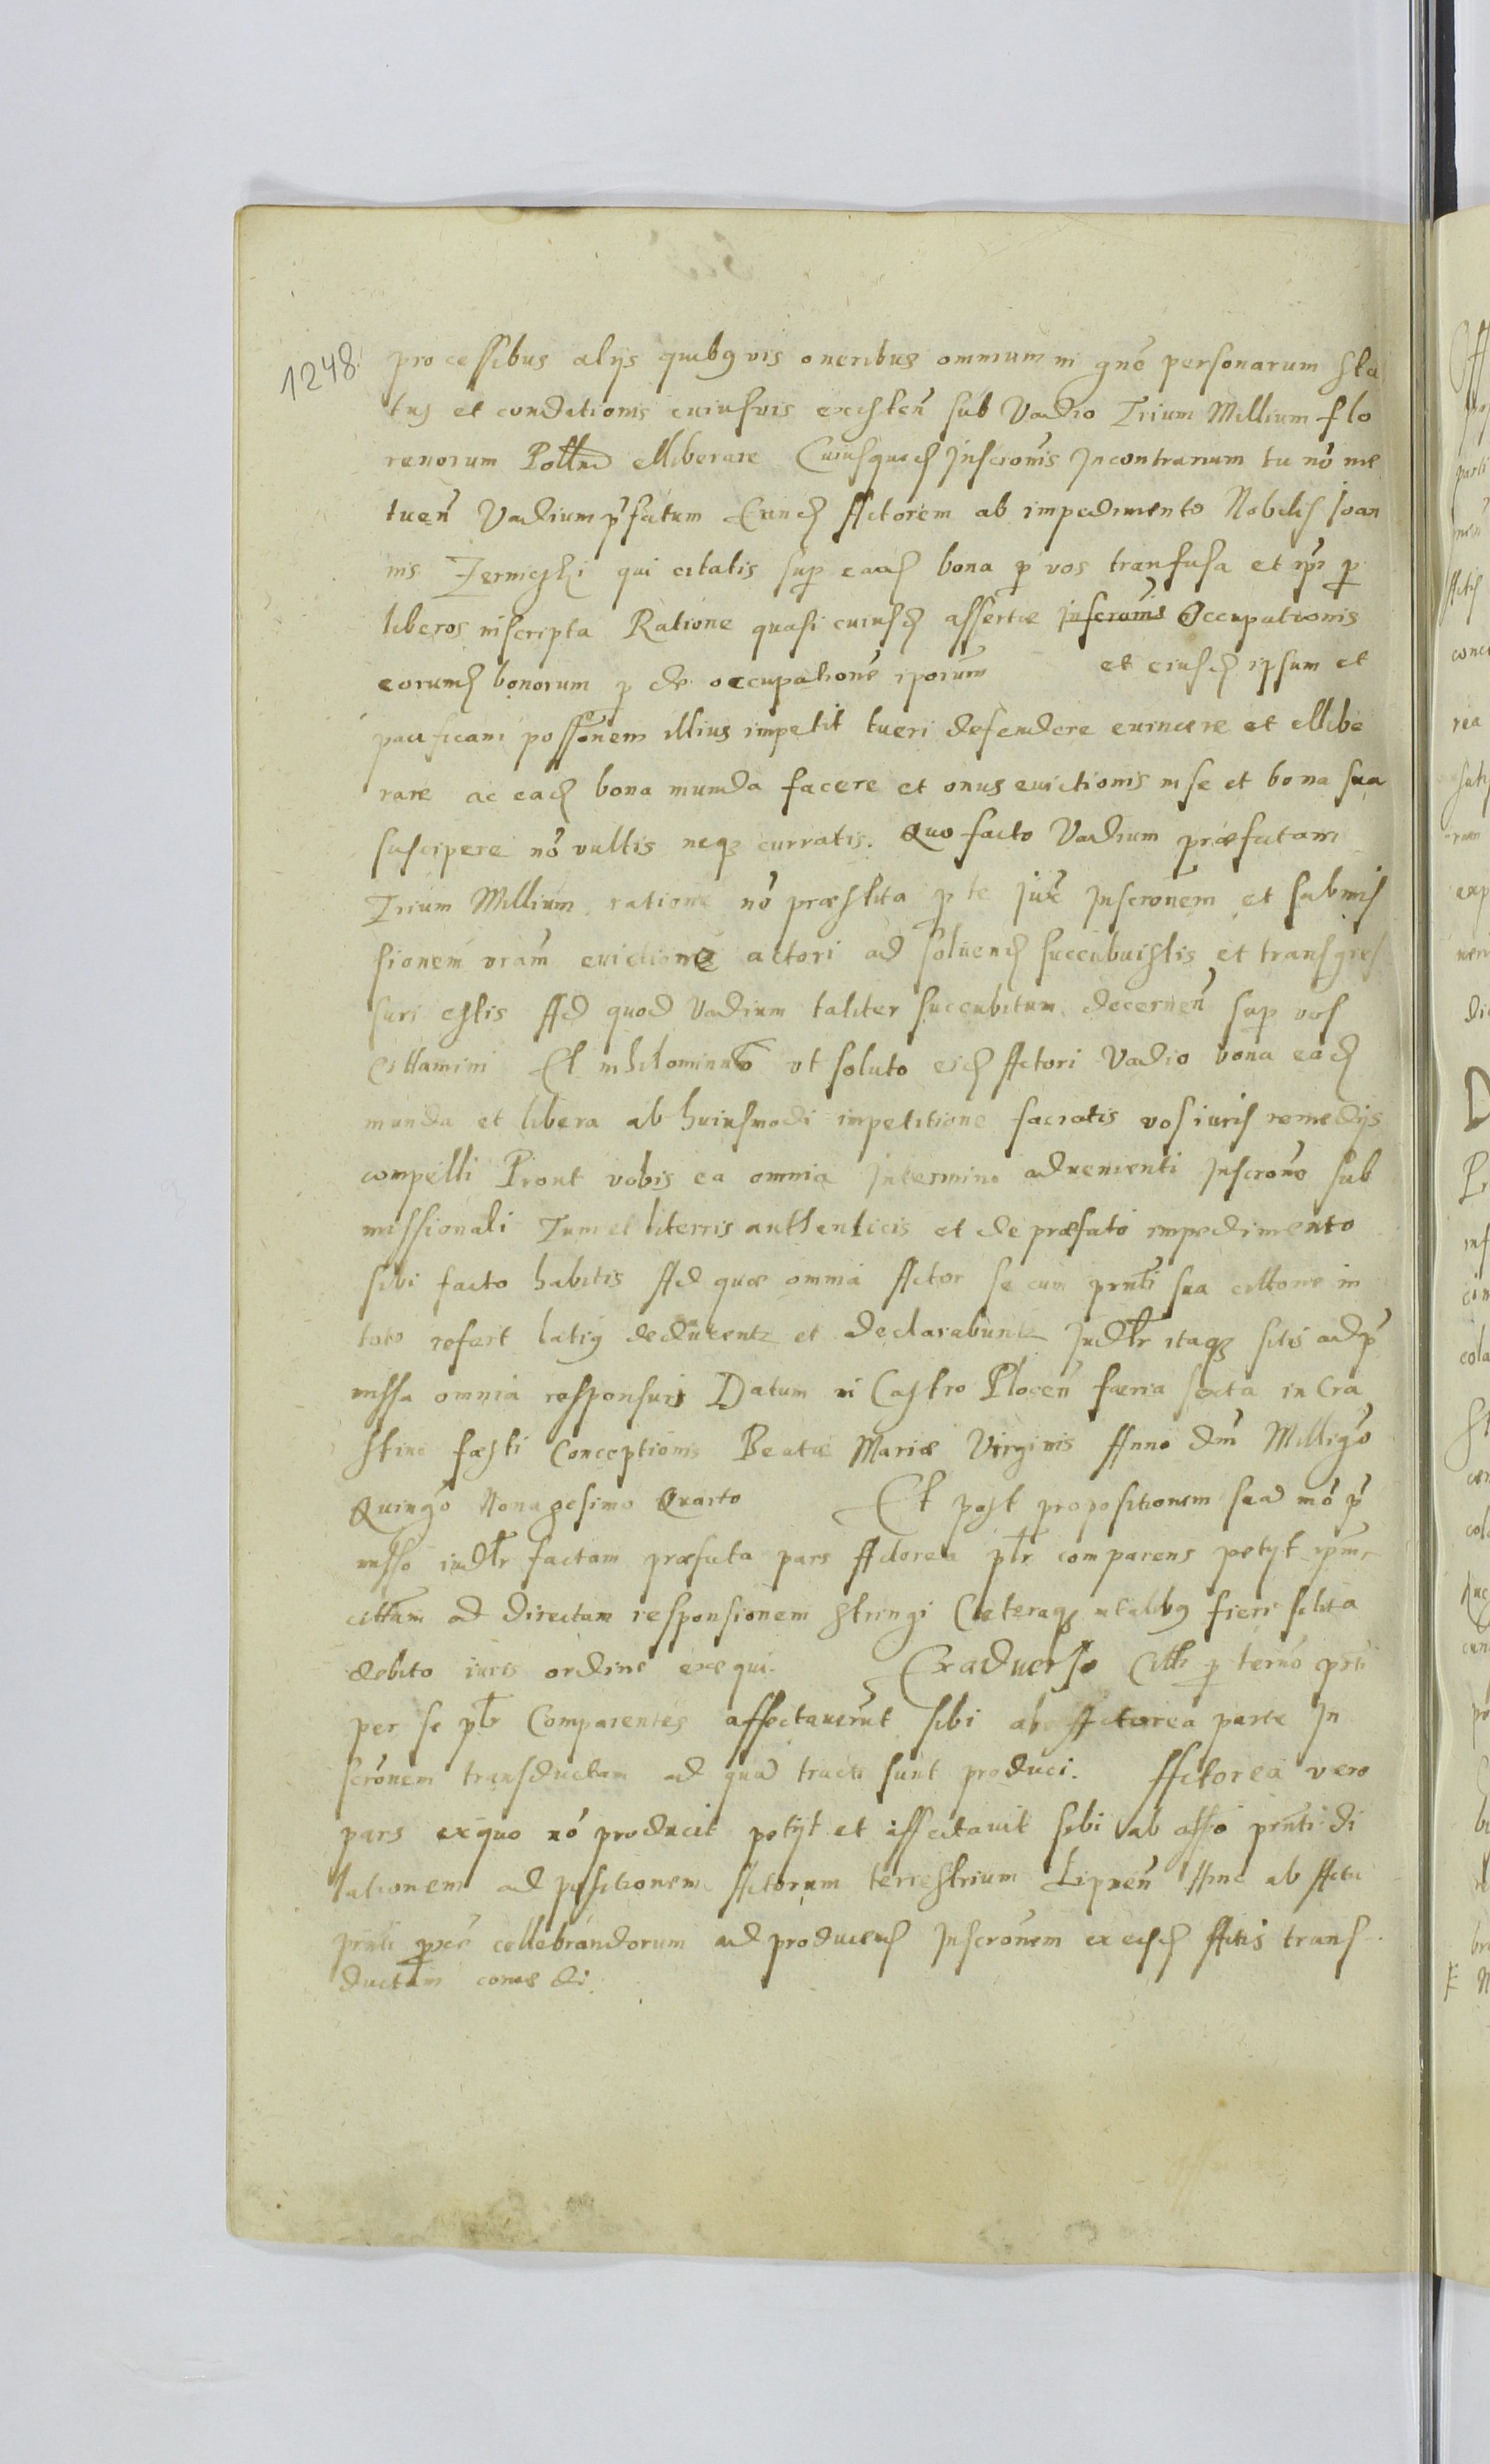 1248.
processibus alijs quibusvis oneribus omnium in gnē personarum sta
tus et conditionis cuiusvis existen̄ sub Vadio Trium Millium flo
renorum elliberare Cuiusquid Inscronis In contrarium tu nō me
tuen̄ Vadium p̄fatum Eund Actorem ab impedimento Nobilis Joan
nis qui citatis sup eaad bona p vos transfusa et p
liberos inscripta Ratione quasi cuiusd assertæ Occupationis
eorumd bonorum p de occupationē ipōrum et eiusd ipsum et
pacificam possōnem illius impetit tueri defendere evincere et ellibe
rare ac ead bona munda facere et onus evictionis in se et bona sua
suscipere nō vultis neq curratis. Quo facto Vadium præfatam
Trium Millium ratione nō præstita p te Juxē Inscronem et submis
sionem vrām evictione actori ad solvend succubuistis et transgres
suri estis Ad quod Vadium taliter succubitum decernen̄ sup vos
Cittamini Et nihilominus vt soluto eid Actori Vadio bona ead
munda et libera ab huiusmodi impetitione faciatis vos iuris remedijs
compelli Prout vobis ea omnia In termino advenienti Inscrone sub
missionali Tum et literris authenticis et de præfato impedimento
sibi facto habitis Ad quæ omnia Actor se cum prnti sua cittone in
toto refert latius deducentr et declarabuntr Judlr itaq sitis ad p̄
missa omnia responsuri Datum in Castro Plocen̄ færia sexta in Cra
stino fæsti Conceptionis Beatæ Mariæ Virginis Anno dm̄ Milligō
Quingō Nonagesimo Quarto Et post propositionem suā mō p̄
misso iudlr factam præfata pars Actorea plr comparens petijt
cittam ad directam responsionem stringi Cæteraq in talibus fieri solita
debito iuris ordine exequi. Ex adverso Citti p ternō
per se plr Comparentes affectaverunt sibi ab Actorea parte In
scronem transductam ad quā tracti sunt produci. Actorea vero
pars ex quo nō producit petijt et affectavit sibi ab affō prnti di
lationem ad positionem Actorum terrestrium Lipnen̄ Hinc ab Actu
prnti cellebrandorum ad producend Inscronem ex eisd Actis trans
ductam concedi.